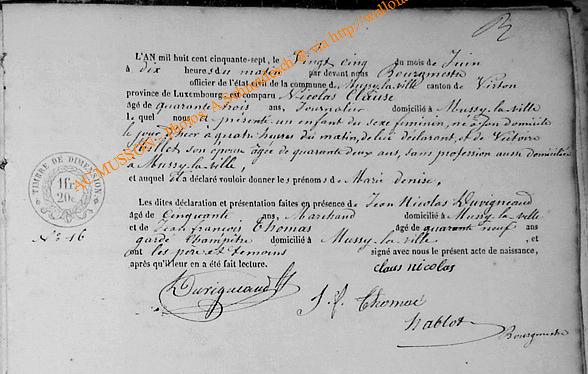 L'AN mil huit cent cinquante-sept, le Vingt cinq du mois de Juin
à dix heures du matin par devant nous Bourgmestre
officier de l'état civil de la commune de Mussy-la-ville canton de Virton
province de Luxembourg, est comparu Nicolas Clause
âgé de quarante trois ans, Journalier domicilié à Mussy-la-ville
lequel nous a présenté un enfant du sexe feminin, né à son domicile
le jour d'hier à quatre heures du matin, de lui déclarant, et de Victoire
son épouse âgée de quarante deux ans, sans profession aussi domiciliée
à Mussy-la-ville,
et auquel il a déclaré vouloir donner les prénoms de Marie Denise,
Les dites déclaration et présentation faites en présence de Jean Nicolas Duvigneaud
âgé de Cinquante ans, Marchand domicilié à Mussy-la-ville
et de Jean françois Thomas âgé de quarante neuf ans
garde champêtre domicilié à Mussy-la-ville, et
ont les père et temoins signé avec nous le présent acte de naissance,
après qu'il leur en a été fait lecture.
claus nicolas
Duvigneaud
J. f. Thomas
Bourgmestre
TIMBRE DE DIMENSION
1fr.
20c.
N° 46
AC MUSSON - Photos A. Schmadtzsch @ via http://wallon